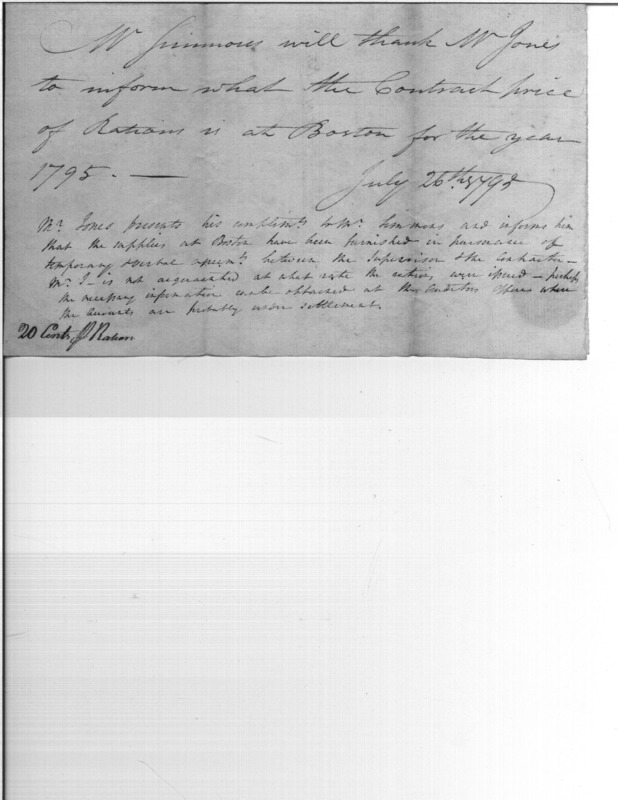 Mr Simmons will thank Mr Jones
to inform what the Contract price
of Rations is at Boston for the year
1795. —
July 26th 1795
Mr. Jones presents his complimts to Mr. Simmons and informs him
that the supplies at Boston have been furnished in pursuance of
temporary & verbal agreemts between the Supervisor & the Contractor —
Mr. J— is not acquainted at what rate the rations were issued — perhaps
the necessary information can be obtained at the Auditors Office where
the accounts are probably under settlement.
20 Cents ⅌ Ration